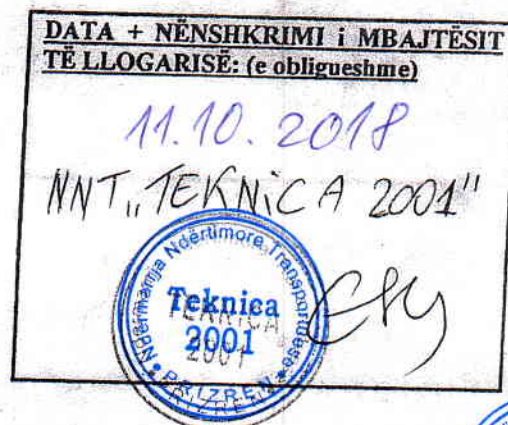 DATA + NËNSHKRIMI i MBAJTËSIT
TË LLOGARISË: (e obligueshme)
11.10.2018
NNT „TEKNiCA 2001"
Ndërmarrja Ndërtimore Transportuese
Teknica
2001
TEKNICA
2001
PRIZREN
PRIZREN